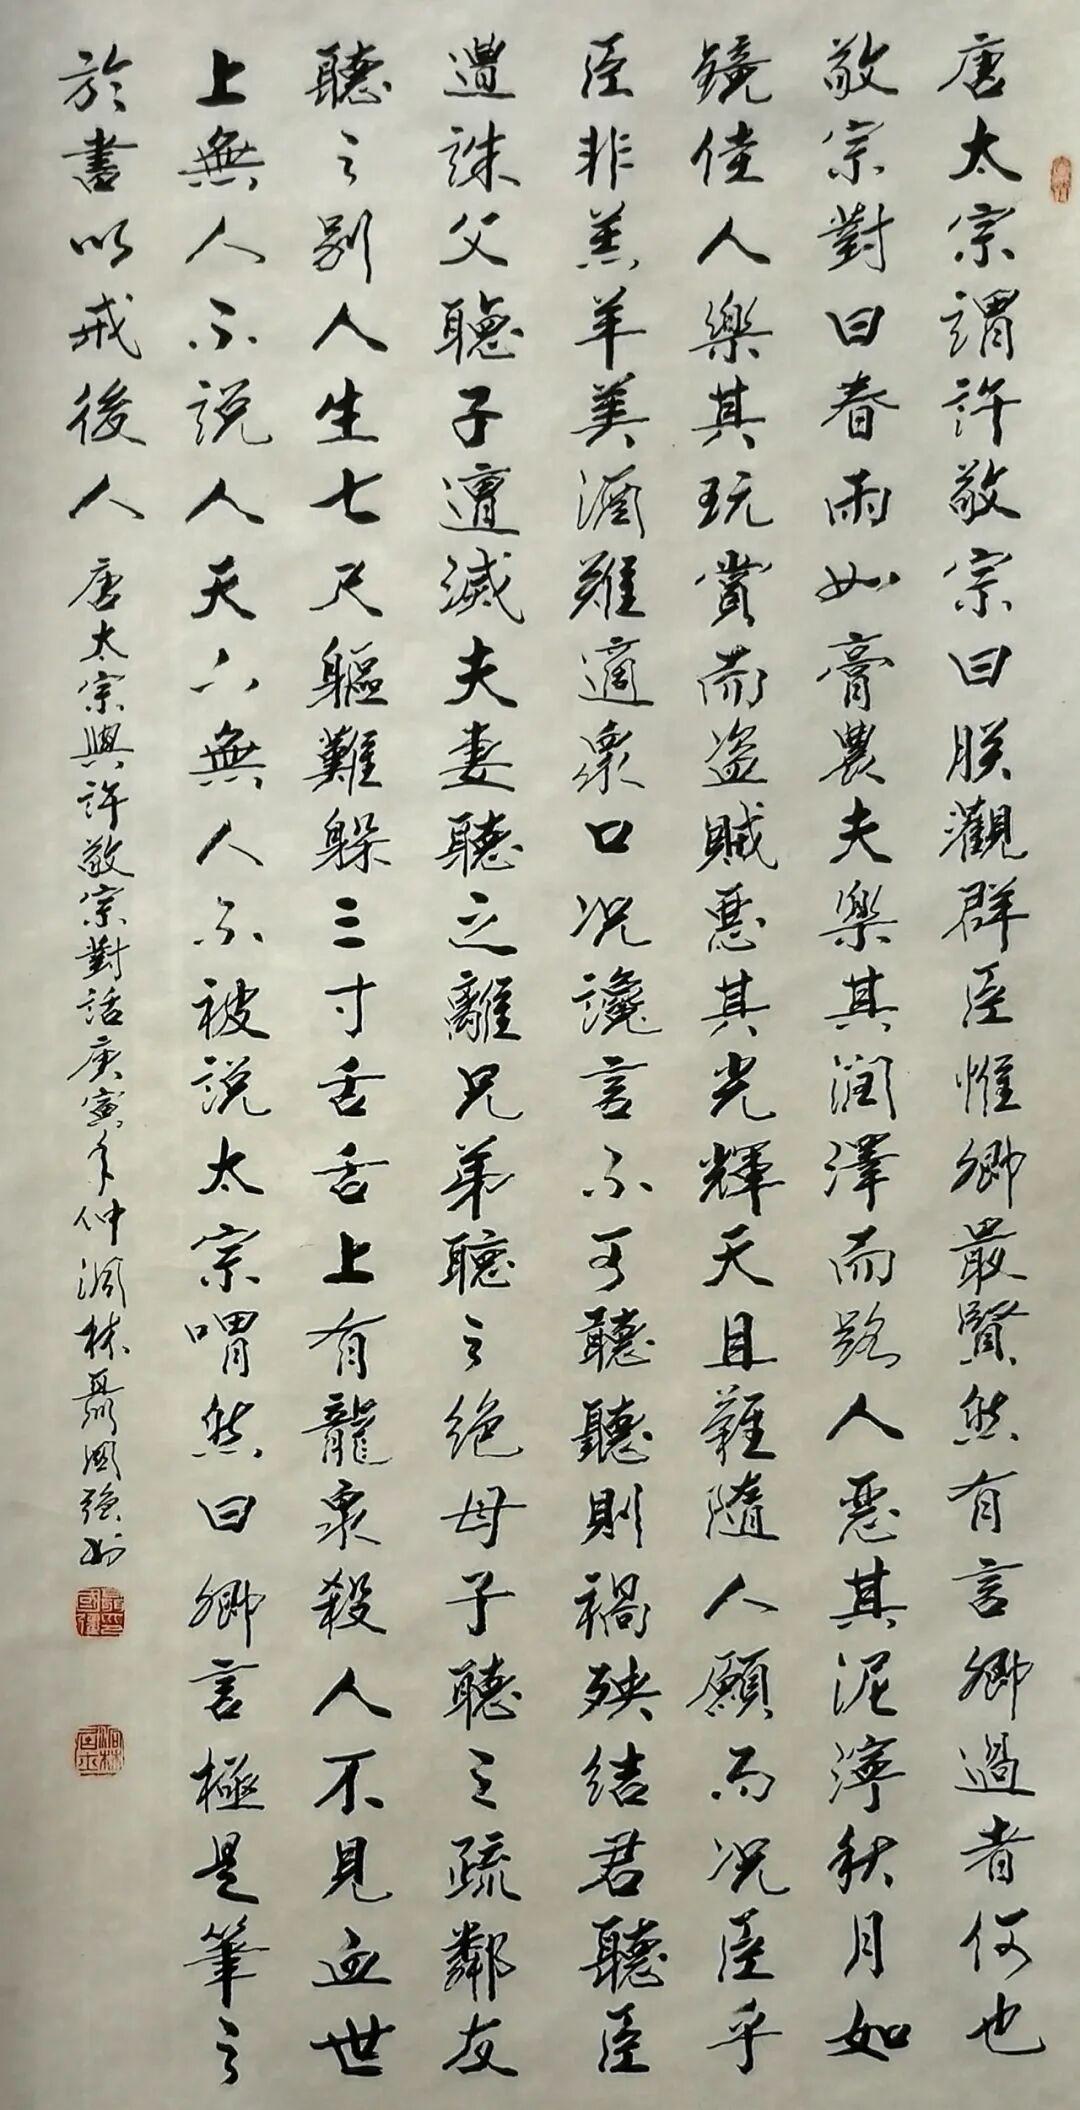 唐太宗謂許敬宗曰朕觀群臣惟卿最賢然有言卿過者何也
敬宗對曰春雨如膏農夫樂其潤澤而路人惡其泥濘秋月如
鏡佳人樂其玩賞而盗賊惡其光輝天且難隨人願而況臣乎
臣非羔羊美酒難適衆口況讒言不可聽聽則禍殃結君聽臣
遭誅父聽子遭滅夫妻聽之離兄弟聽之绝母子聽之疏鄰友
聽之别人生七尺軀難躲三寸舌舌上有龍泉殺人不見血世
上無人不説人天下無人不被説太宗喟然曰卿言極是筆之
於書以戒後人
唐太宗與許敬宗對話庚寅年仲洞林聶國强书